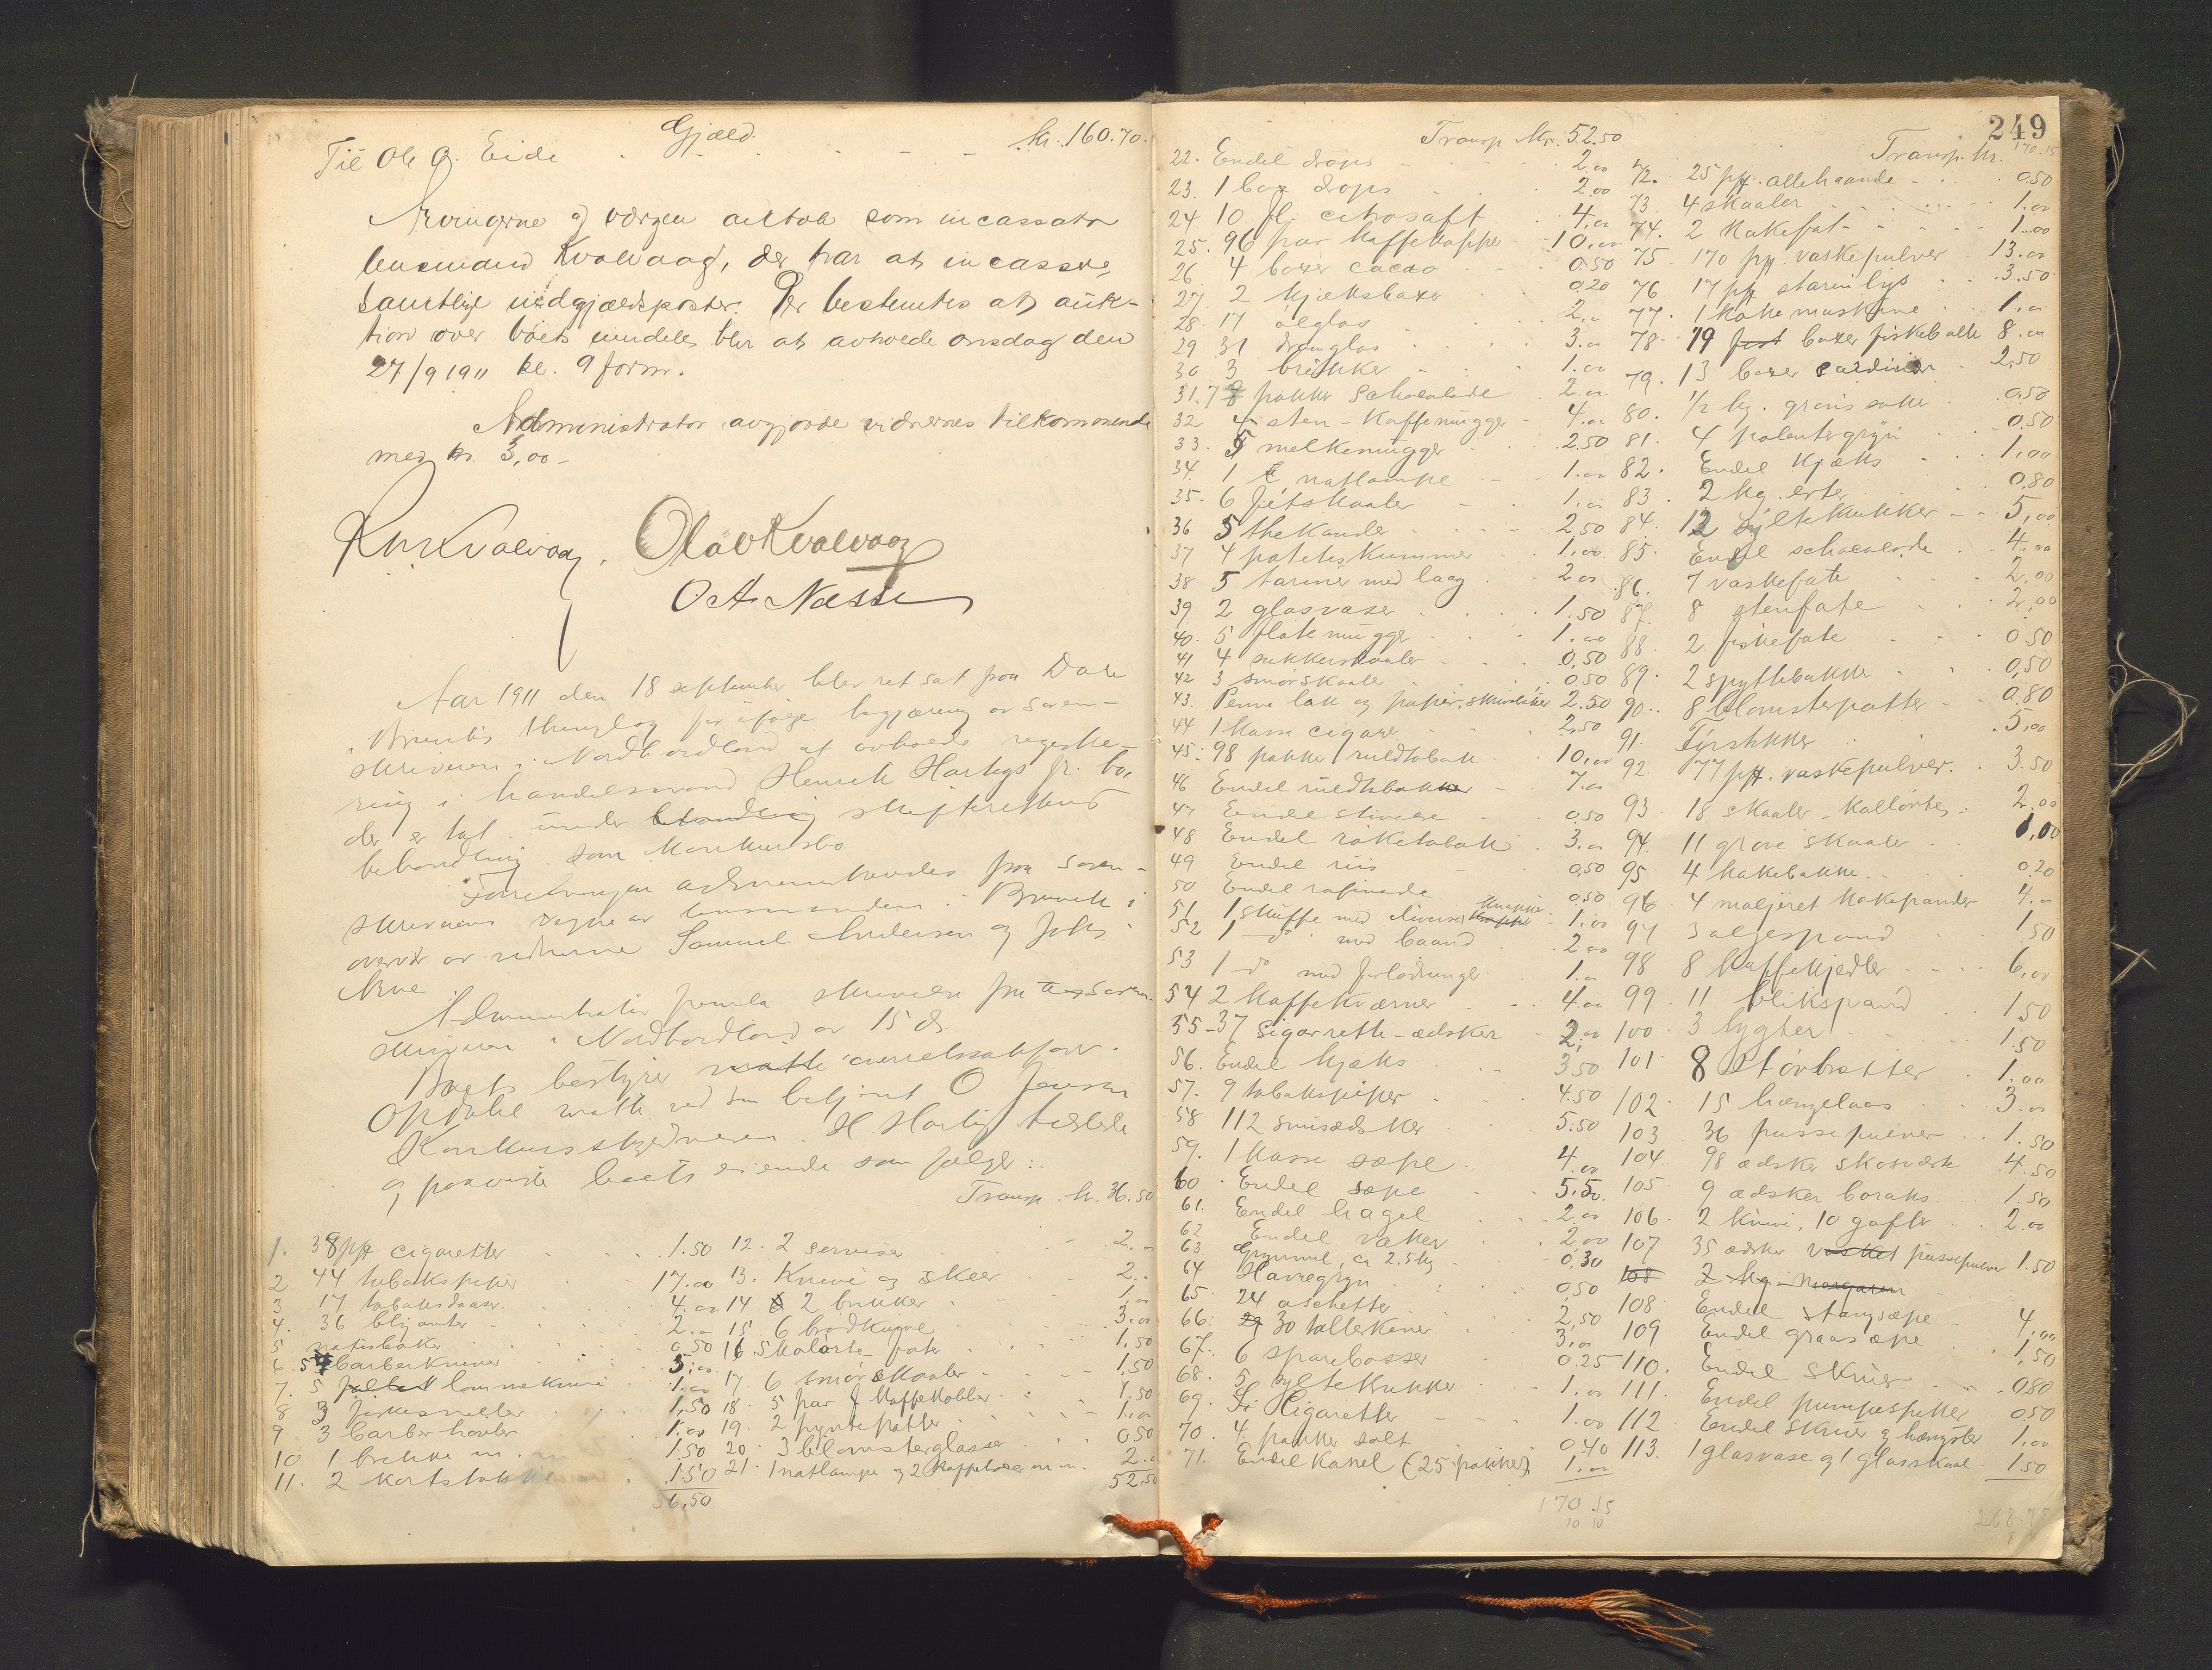 Gjæld.
Til Ole O. Eide - - - - kr. 160.70.
Arvingerne og værgen antok som incassator
lensmand Kvalvaag, der har at incassere
samtlige utgjældsposter. Der bestemtes at auk-
tion over boets eiendele blir at avholde onsdag den
27/9 1911 kl. 9 form.
Administrator avgjorde vidnernes tilkommende
med kr. 3,00 -
Kvalvaag. Olav Kvalvaag
O. A. Næsse
Aar 1911 den 18 september blev ret sat paa Dale
i Bruvik thinglag for ifølge begjæring av soren-
skriveren i Nordhordland at avholde registre-
ring i handelsmand Henrik Hartvigs jr. bo,
der er tat under behandling skifterettens
behandling som konkursbo
Forretningen administreredes paa soren-
skriverens vegne av lensmanden i Bruvik i
overvær av vidnerne Samuel Andersen og Johs.
Arne
Administrator fremla skrivelse fra soren-
skriveren i Nordhordland av 15 ds.
Boets bestyrer
Opdahl møtte ved sin betjent O Jensen
Konkursskyldneren H Hartvig tilstede
og paaviste boets eiende som følger:
Transp. kr. 36.50
1. 38 pk cigaretter 1.50
2 44 tobakspiper 17.00
3 17 tobaksdaaser 4.00
4. 36 blyanter 2.00
5 notisbøker 0.50
6. 5 barberkniver 5.00
7. 5 lommeknive 1.00
8 3 fiskesneller 1,50
9 3 barberhøvler 1.00
10 1 brikke m. m 1.50
11. 2 kortstokke 1.50
36,50
12. 2 serviser 2.-
13. Knive og skeer 2.-
14 2 brikker 1.00
15 6 brødkurve 3.00
16. 5 kulørte fater 1,50
17. 6 smørskaaler 1,50
18. 5 par kaffekopper 1.50
19. 2 pyntepotter 1.00
20. 3 blomsterglasse 0.50
21. 1 natlampe og 2 kaffebokser m. m. 2.00
52.50
249
Transp kr. 52.50
22. Endel drops 2.00
23. 1 box drops 2.00
24 10 fl. citrosaft 4.00
25. 96 par kaffekopper 10.00
26 4 boxer cacao 0.50
27. 2 kjæksbaxer 0.20
28. 17 ølglas 2.-
29 31 dramglas 3.00
30 3 brikker 1.00
31. 7 pakker Schocolade 2.00
32 4 sten-kaffemugger 4.00
33. 5 melkemugger 2.50
34. 1 natlampe 1.00
35- 6 fetskaaler 1.00
36 5 thekander 2.50
37 4 potetes kummer 1.00
38 5 tariner med laag 2.00
39 2 glasvaser 1.50
40. 5 fløtemugger 1.00
41 4 sukkerskaaler 0,50
42 3 smørskaaler 0.50
43. Penne lak og papir, skrivebøker 2.50
44 1 kasse cigarer 2,50
45: 98 pakker ruldtobak 10,00
46 Endel ruldtobak 7.00
47 Endel stivelse 0.50
48 Endel røketobak 3.00
49 Endel ris 0,50
50 Endel rafinade 0.50
51. 1 skuffe med diverse knapper 1.00
52 1 do med baand 2.00
53 1 do med forlodninger 1.00
54 2 kaffekværner 4.00
55- 37 sigarrett-æsker 2,00
56. Endel kjæks 3.50
57. 9 tobakspiper 4.50
58 112 snusædsker 5.50
59. 1 kasse sæpe 4.00
60. Endel sæpe 5.50.
61. Endel hagel 2.00
62 Endel vaker 2.00
63 Grynmel, ca 2.5 kg 0,30
64 Havregryn 0,50
65. 24 aschetter 2,50
66. 30 tallerkener 3,00
67. 6 sparebøsser 0.25
68. 5 sylte krukker 1.00
69. Cigaretter 1.00
70. 4 pakker salt 0.40
71. Endel kanel (25 pakker) 1.00
170.15
10 10
Transp. kr. 170.15
72. 25 pk. allehaande 0.50
73 4 skaaler 1.00
74. 2 kakefat 1.00
75 170 pk. vaskepulver 13.00
76. 17 pk stærinlys 3.50
77. 1 kakemaskine 1.00
78. 19 boxer fiskeboller 8.00
79. 13 boxer sardiner 2,50
80. 1/2 kg. grønsaker 0.50
81. 4 patentgryn 0.50
82. Endel kjæks 1,00
83. 2 kg. erter 0.80
84. 12 syltekrukker 5,00
85. Endel schocolade 4.00
86. 7 vaskefate 2,00
87. 8 stenfate 2,00
88 2 fiskefate 0.50
89. 2 spyttebakker 0,50
90. 8 blomsterpotter 0.80
91. Fyrstikker 5.00
92. 77 pk. vaskepulver. 3.50
93. 18 skaaler - kulørtes 2.00
94. 11 grove skaaler 1,00
95 4 kakebakke 0.20
96. 4 maljeret kakepander 4.00
97 3 ølgespand 1.50
98 8 kaffekjedler 6,00
99. 11 blikspand 1.50
100. 3 lygter 1.50
101. 8 støvbretter 1.00
102. 15 hængelaas 3.00
103. 36 pussepulver 1.50
104. 98 ædsker skosværte 4.50
105. 9 ædsker boraks 1.50
106. 2 knive, 10 gafler 2.00
107 35 ædsker vasket pussepulver 1.50
108 2 kg. margarin
108. Endel stangsæpe 4.
109 Endel graasæpe 1,00
110. Endel skruer 1,50
111. Endel pumpespiker 0.80
112 Endel skruer og hængsler 0.50
113. 1 glasvase og 1 glasskaal 1.50
268.75